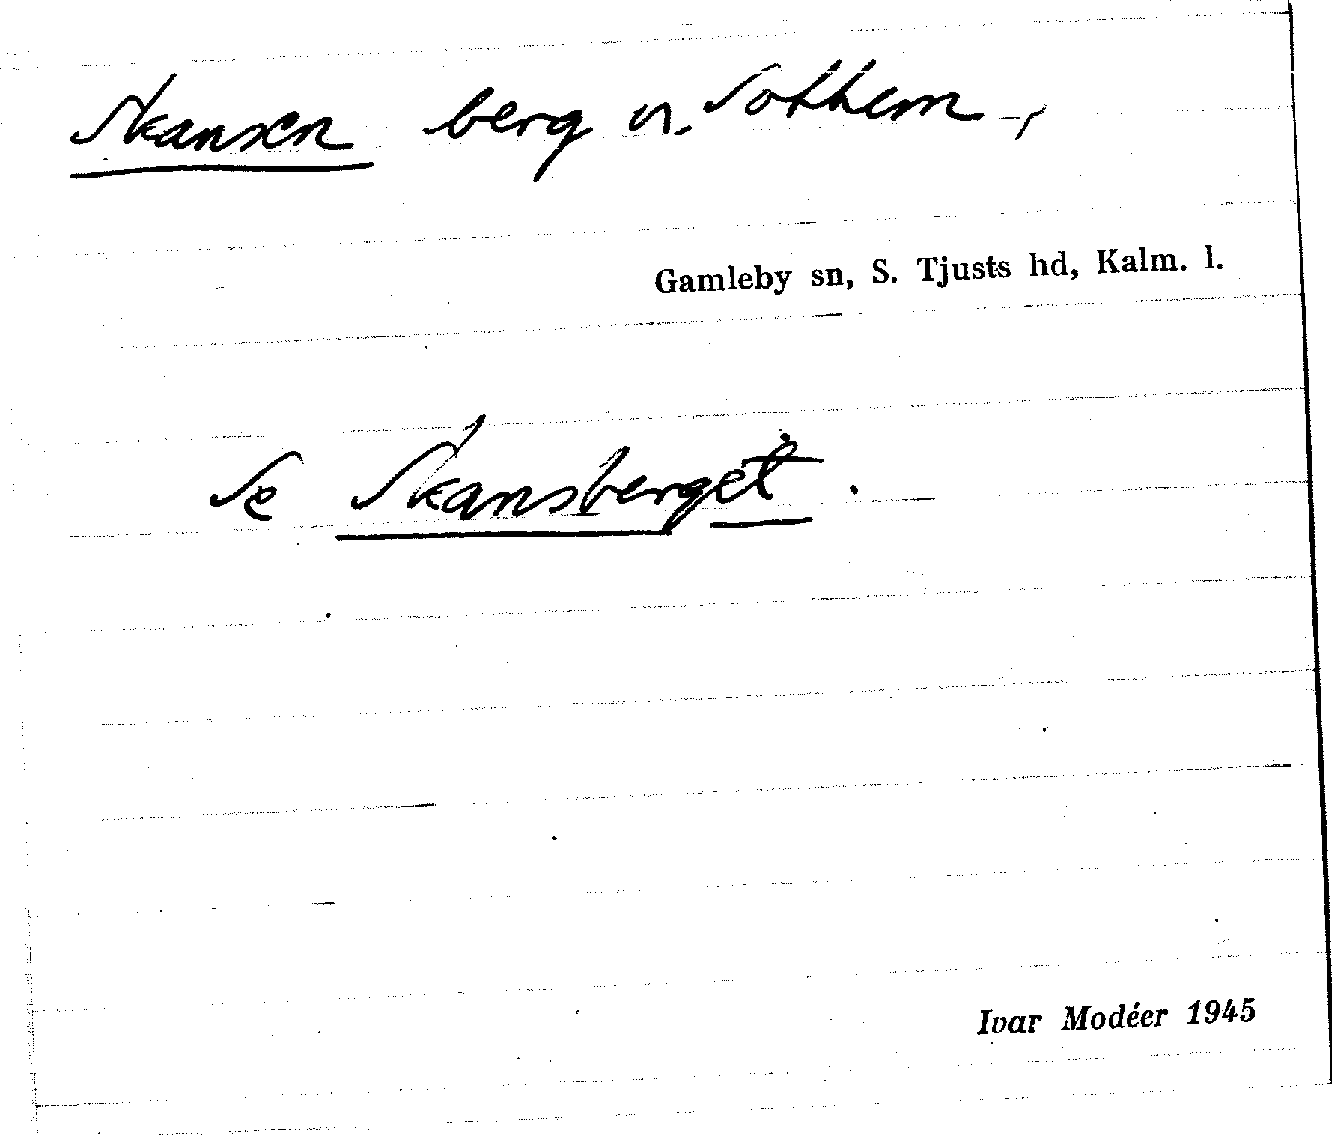 Skansen berg v. Sothem,
Gamleby sn, S. Tjusts hd, Kalm. l.
Se Skansberget.
Ivar Modéer 1945